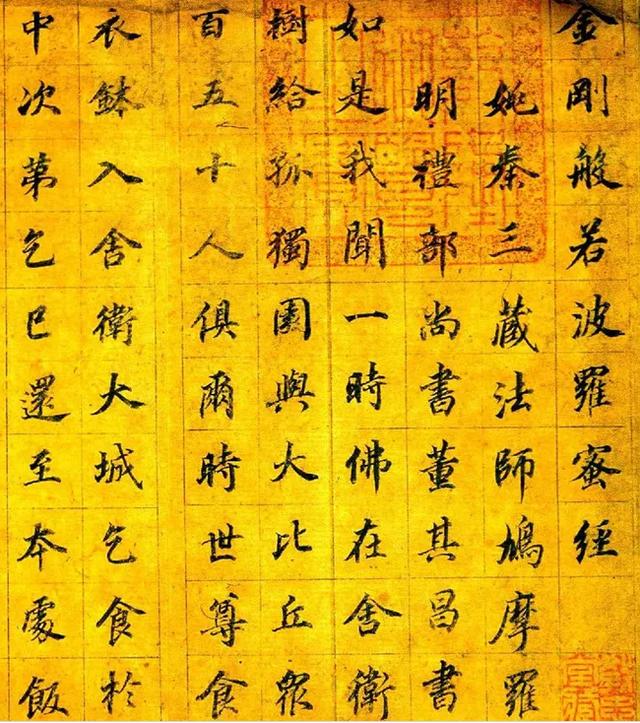 金剛般若波羅蜜經
姚秦三藏法師鳩摩羅
明禮部尚書董其昌書
如是我聞一時佛在舍衛
樹給孤獨園與大比丘眾
百五十人俱爾時世尊食
衣鉢入舍衛大城乞食於
中次第乞已還至本處飯